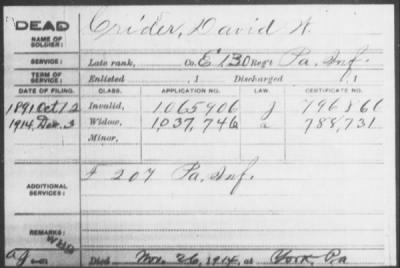 DEAD
NAME OF SOLDIER: Crider, David H.
SERVICE: Late rank, Co. E 130 Reg't Pa. Inf.
TERM OF SERVICE: Enlisted , 1 Discharged , 1
DATE OF FILING. CLASS. APPLICATION NO. LAW. CERTIFICATE NO.
1891 Oct 12 Invalid, 1065906 J 796866
1914, Dec. 3 Widow, 1,037,746 a 788,731
Minor,
ADDITIONAL SERVICES: F 207 Pa. Inf.
REMARKS:
Died Nov. 26, 1914, at York Pa